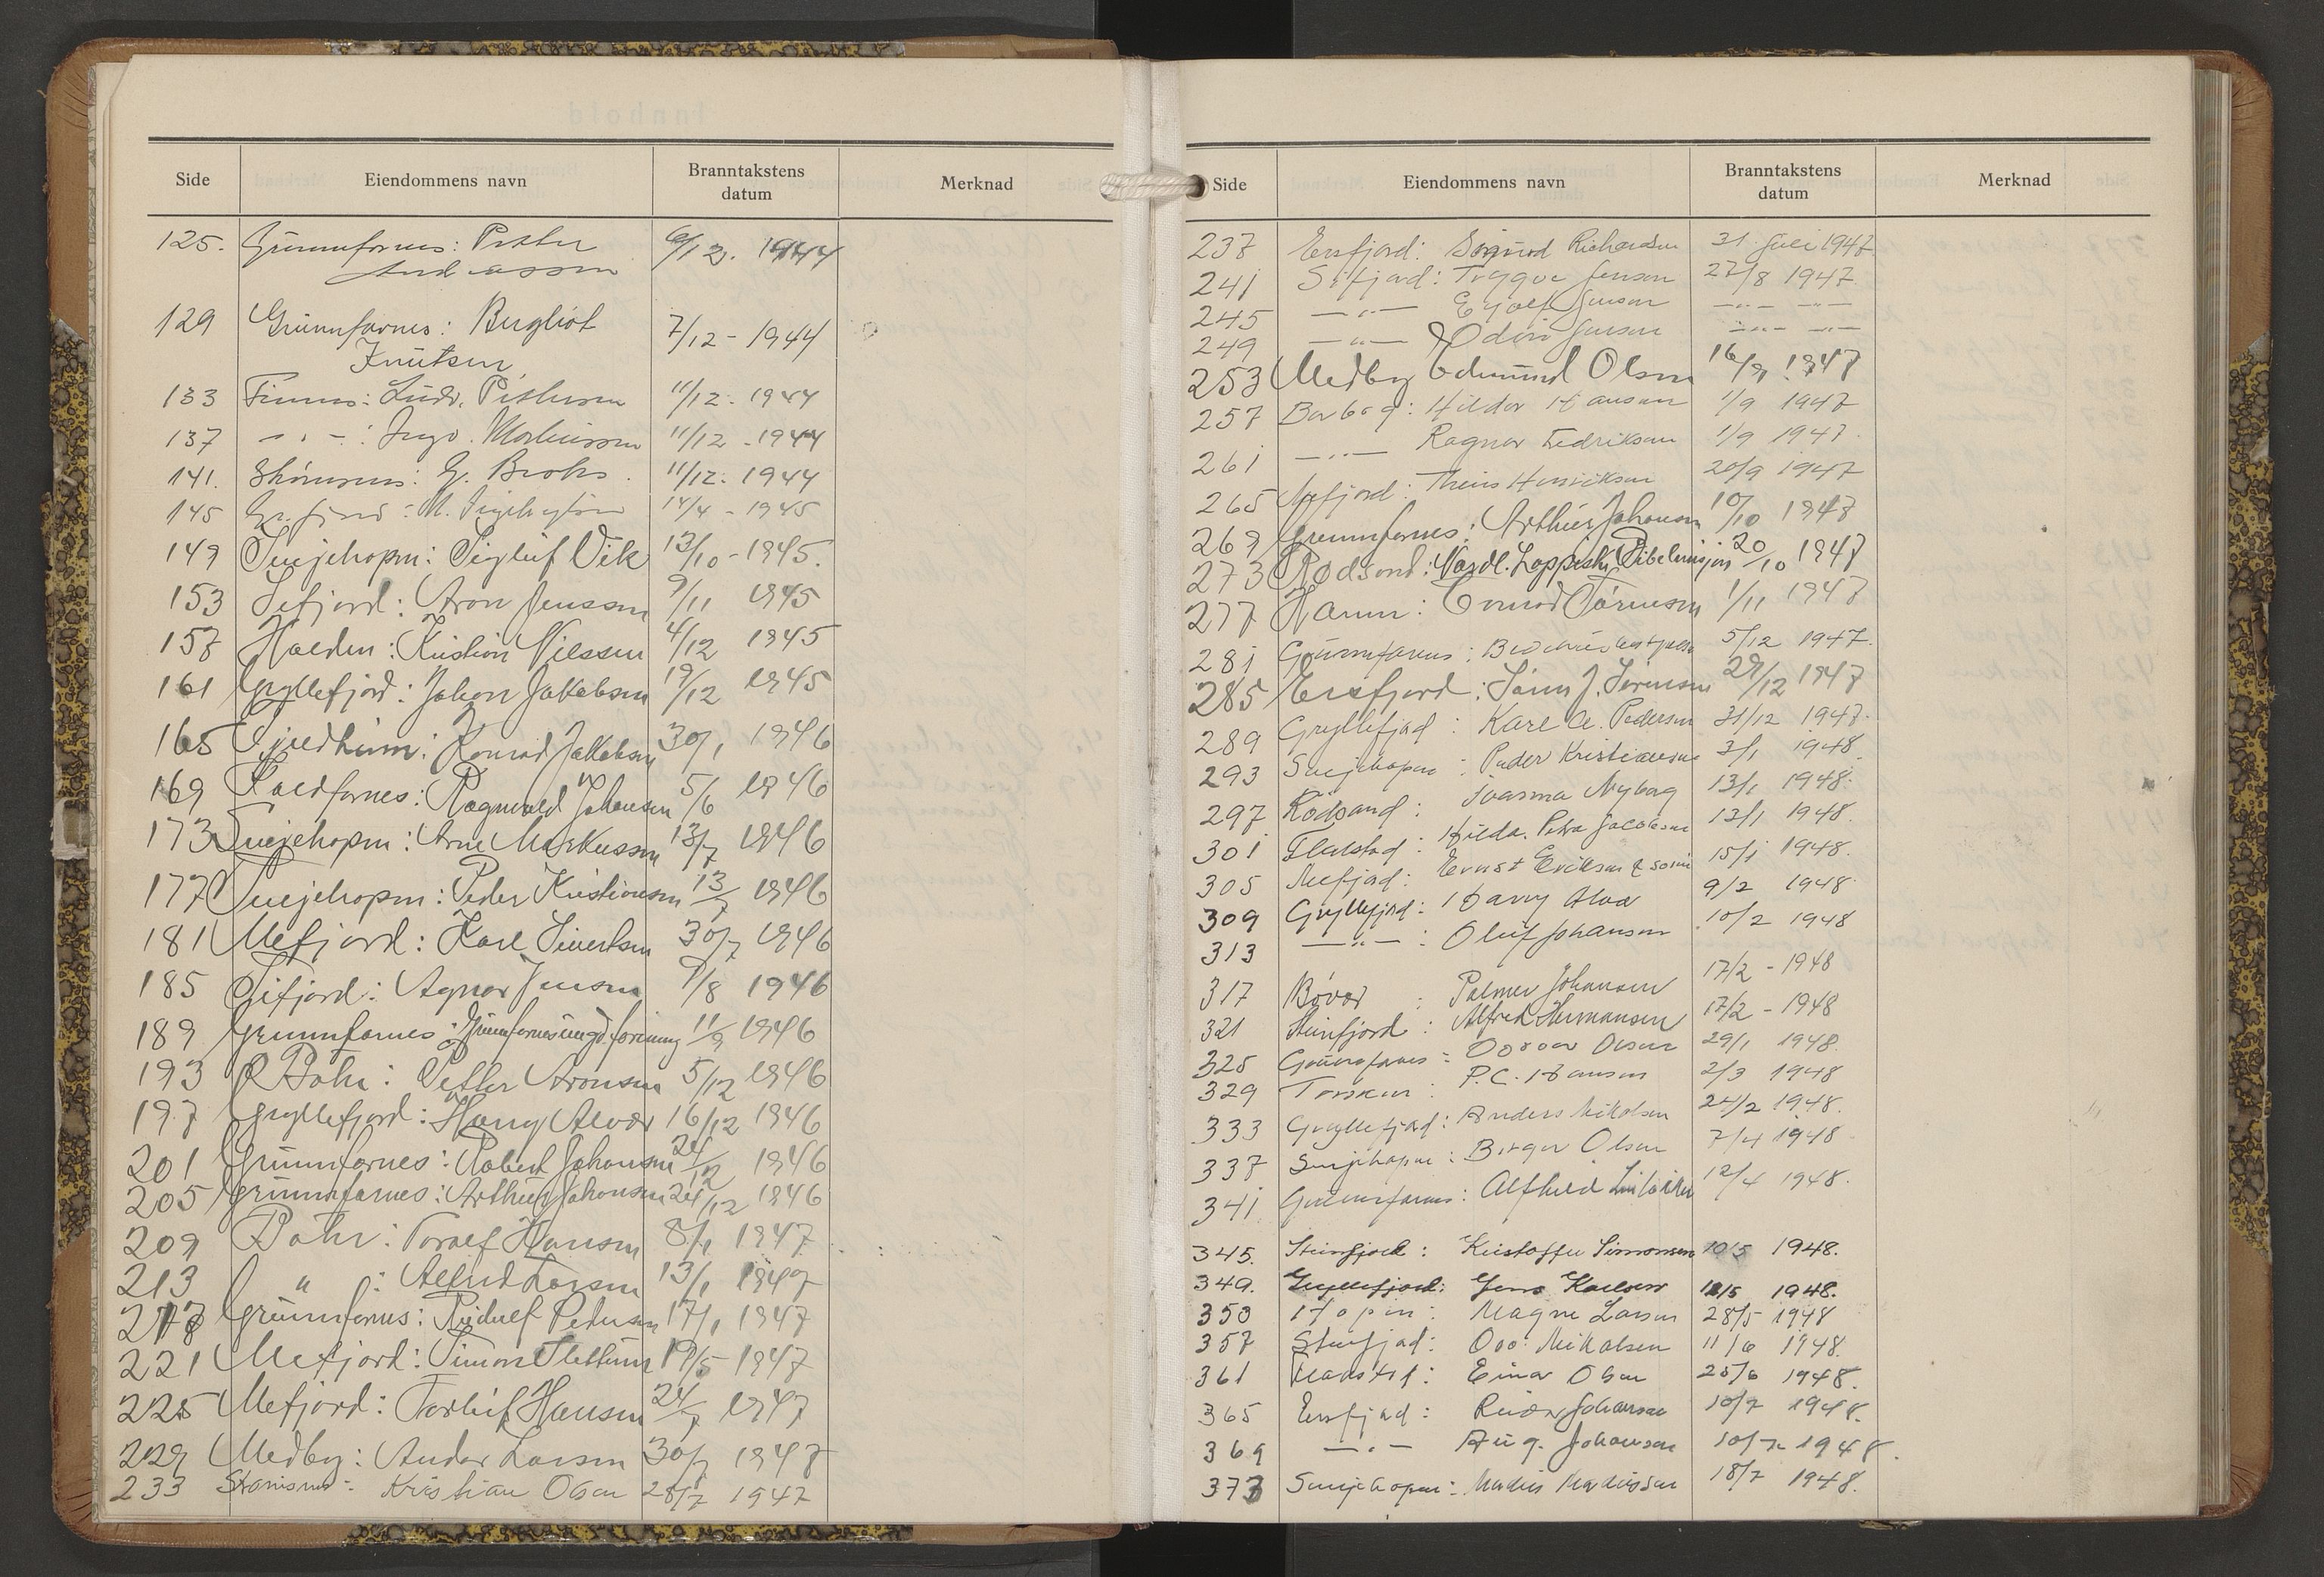 Side Eiendommens navn Branntakstens datum Merknad
125. Grunnfarnes: Petter 6/12. 1944
Andreassen
129 Grunnfarnes: Bergliot 7/12 - 1944
Knutsen
133 Finnes: Ludv. 11/12 - 1944
137 - " - : Ingv. 11/12 - 1944
141. G. 11/12. 1944
145 M. 14/4 - 1945
149 Senjehopen: Sigluf Vik 13/10 - 1945.
153 Sefjord: Aron Jenssen 9/11 1945
157 Halden: Kristian Nilssen 4/12 1945
161 Gryllefjord: Johan Jakobsen 19/12 1945
165 Konrad Jakobsen 30/1 1946
169 Kaldfarnes: Ragnvald Johansen 5/6 1946
173 Senjehopen: Arne Markussen 13/7 1946
177 Senjehopen: Peder Kristiansen 13/7 1946
181 Mefjord: Karl Sivertsen 30/7 1946
185 Sifjord: Agnar Jensen 9/8 1946
189 Grunnfarnes: Grunnfarnes ungd.forening 11/9 1946
193 Petter Aronsen 5/12 1946
197 Gryllefjord: Harry Alvær 16/12 1946
201 Grunnfarnes: Robert Johansen 24/12 1946
205 Grunnfarnes: Arthur Johansen 24/12 1946
209 Torolf Hansen 8/1 1947
213 " : Alfred Larsen 13/1 1947
217 Grunnfarnes: Rudolf Pedersen 17/1 1947
221 Mefjord: Simon Slettum 19/5 1947
225 Mefjord: Torleif Hansen 24/7 1947
229 Medby: Andor Larsen 30/7 1947
233 Kristian Olsen 28/7 1947
Side Eiendommens navn Branntakstens datum Merknad
237 Ersfjord: Sigurd Richardsen 31 juli 1947
241 Sifjord: Trygve Jensen 27/8 1947
245 — " — Eyolf Jensen — " — — " —
249 — " — Odin Jensen — " — — " —
253 Medby Edmund Olsen 16/9 1947
257 Borbog: Hildor Hansen 1/9 1947
261 — " — Ragnar Fredriksen 1/9 1947
265 Theis Henriksen 20/9 1947
269 Grunnfarnes: Arthur Johansen 10/10 1947
273 Rødsand: Nordl. Lappiske Bibelmisjon 20/10 1947
277 Hamn: Tørnesen 1/11 1947
281 Grunnfarnes: 5/12 1947.
285 Ersfjord: Søren J. Sørensen 29/12 1947
289 Gryllefjord: Karl A. Pedersen 31/12 1947.
293 Senjehopen: Peder Kristiansen 3/1 1948
297 Rødsand: Nyborg 13/1 1948.
301 Flakstad: Hilda Petra Jacobsen 13/1 1948.
305 Mefjord: Ernst Eriksen & sønn 15/1 1948.
309 Gryllefjord: Harry Alvær 9/2 1948.
313 — " — : Oluf Johansen 10/2 1948
317 Bøvær : Palmer Johansen 17/2 - 1948
321 Steinfjord: Alfred Hermansen 17/2 - 1948
325 Grunnfarnes: Olsen 29/1 1948.
329 Torsken: P.C. Hansen 2/3 1948
333 Gryllefjord: Anders Nikolsen 24/2 1948.
337 Senjehopen: Birger Olsen 7/4 1948
341 Grunnfarnes: Alfhild 12/4 1948.
345. Steinfjord: Kristoffer Simonsen 10/5 1948.
349. Gryllefjord: Jens Karlsen 11/5 1948.
353 Hopen: Magne Larsen 28/5 1948
357 Steinfjord: Mikalsen 11/6 1948.
361 Flakstad: Einar Olsen 25/6 1948.
365 Ersfjord: Reidar Johansen 10/7 1948.
369 — " — Aug. Johansen 10/7 1948.
373 Senjehopen: 18/7 1948.